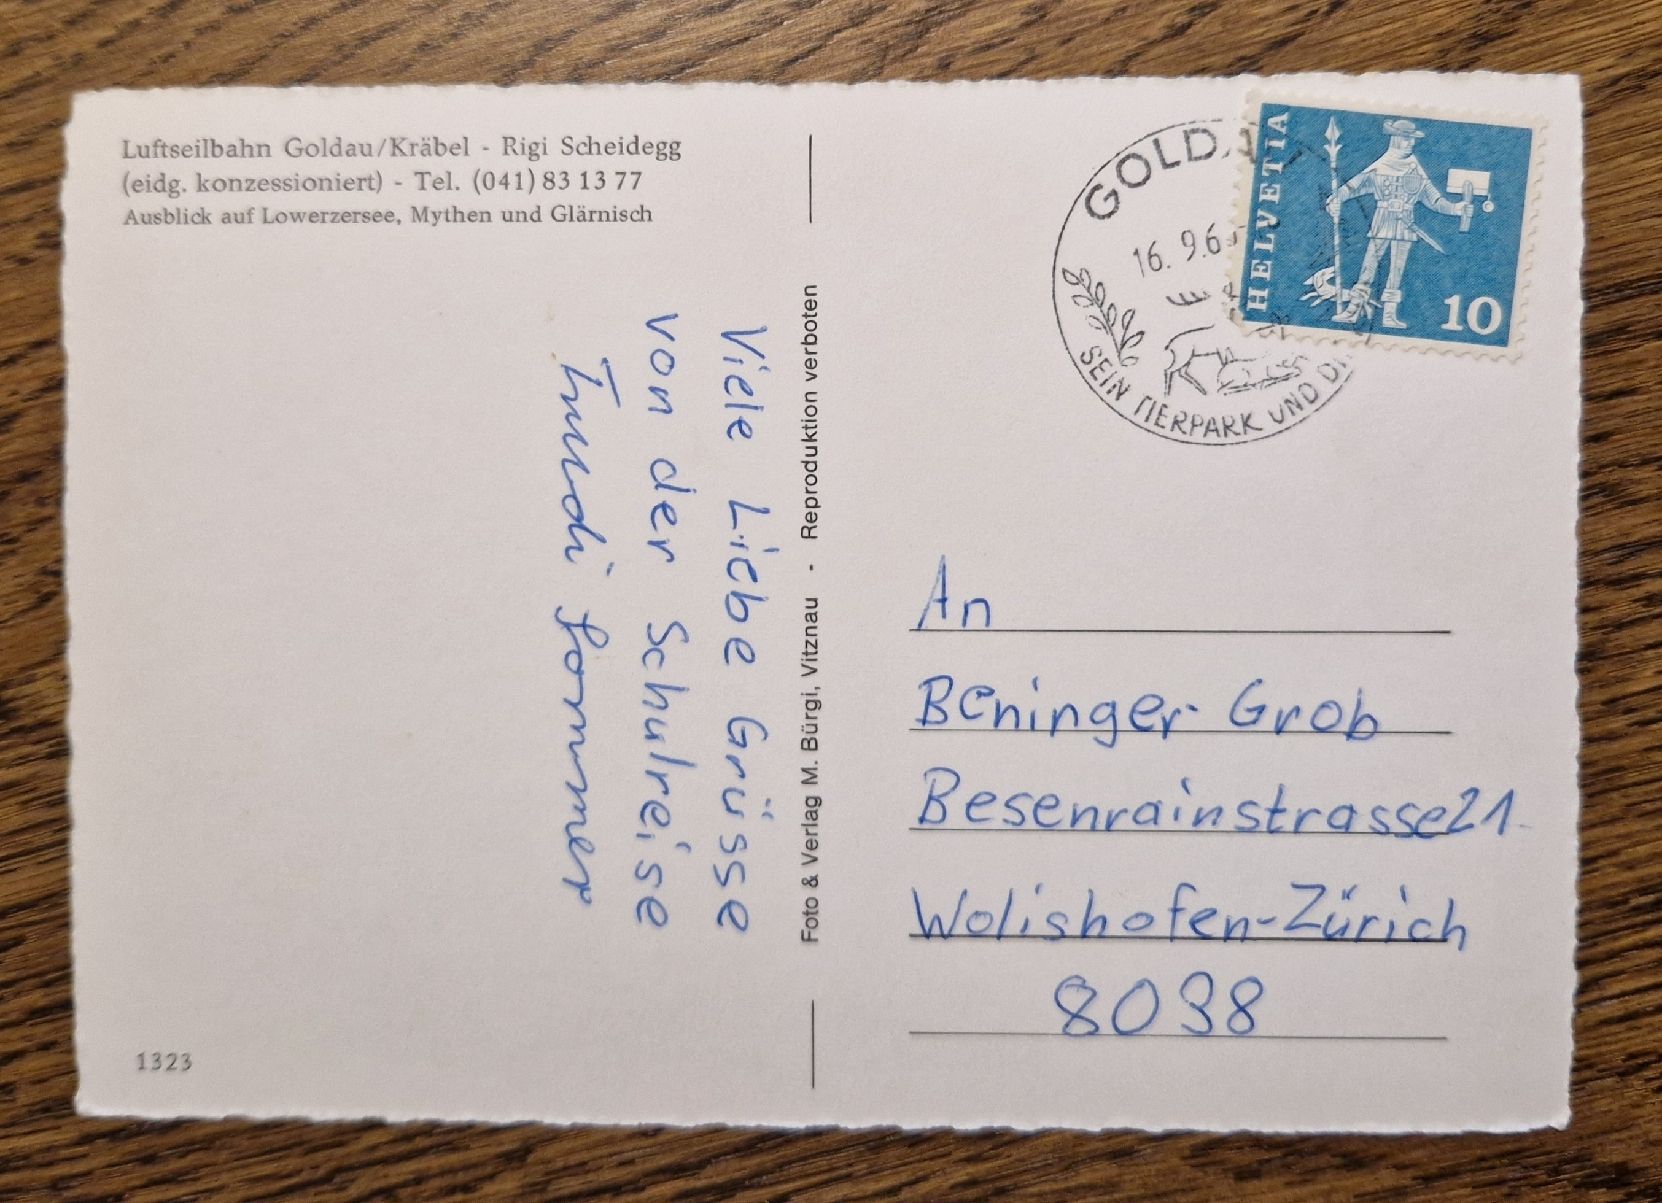 Luftseilbahn Goldau/Kräbel - Rigi Scheidegg
(eidg. konzessioniert) - Tel. (041) 83 13 77
Ausblick auf Lowerzersee, Mythen und Glärnisch
Viele Liebe Grüsse
von der Schulreise
Trudi Sommer
1323
Foto & Verlag M. Bürgi, Vitznau - Reproduktion verboten
GOLDAU
16. 9.6
SEIN TIERPARK UND
HELVETIA
10
An
Beninger-Grob
Besenrainstrasse 21
Wolishofen-Zürich
8038